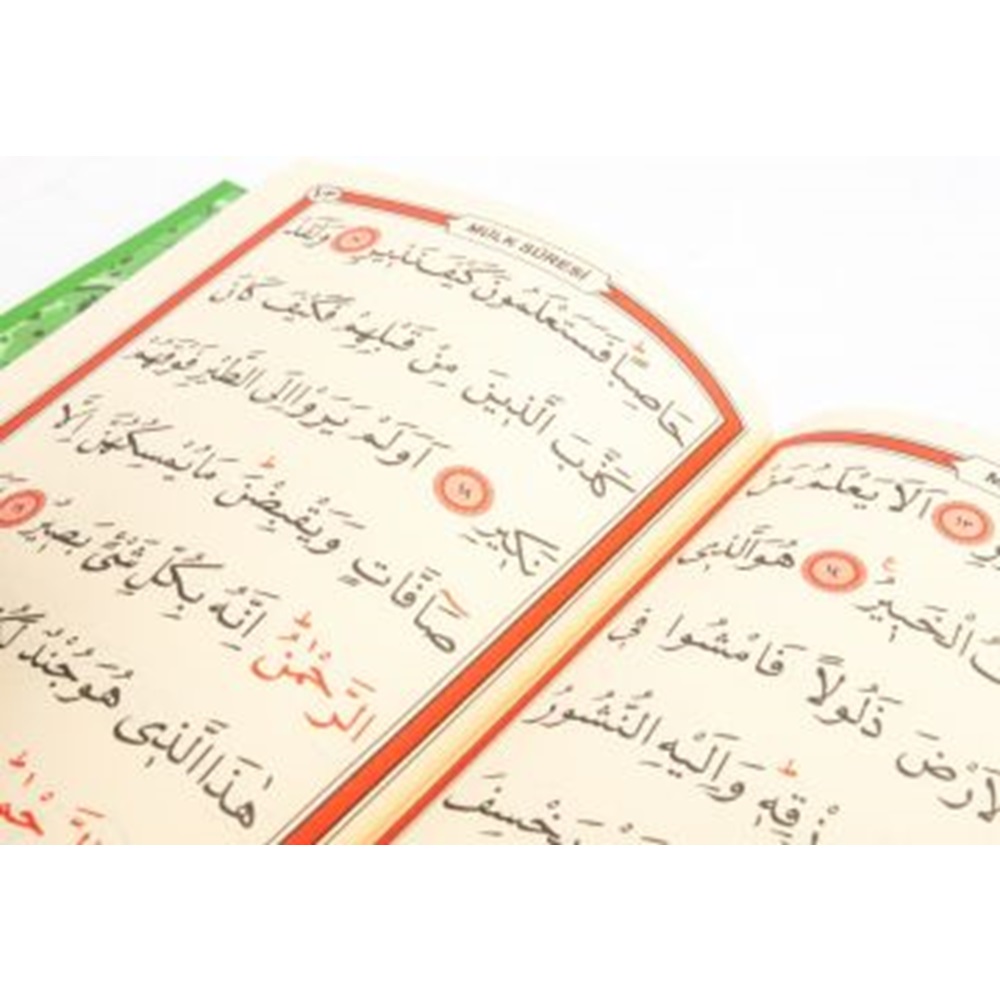 اَلَا يَعْلَمُ مَنْ
الْخَبِيرُ ١٤ هُوَ الَّذِى
الْاَرْضَ ذَلُولًا فَامْشُوا فِى
رِزْقِهِ وَاِلَيْهِ النُّشُورُ
يَخْسِفَ
MÜLK SÛRESİ
حَاصِبًا فَسَتَعْلَمُونَ كَيْفَ نَذِيرِ ١٧ وَلَقَدْ
كَذَّبَ الَّذِينَ مِنْ قَبْلِهِمْ فَكَيْفَ كَانَ
نَكِيرِ ١٨ اَوَلَمْ يَرَوْا اِلَى الطَّيْرِ فَوْقَهُمْ
صَافَّاتٍ وَيَقْبِضْنَ مَا يُمْسِكُهُنَّ اِلَّا
الرَّحْمٰنُ اِنَّهُ بِكُلِّ شَىْءٍ بَصِيرٌ ١٩
هٰذَا الَّذِى هُوَ جُنْدٌ